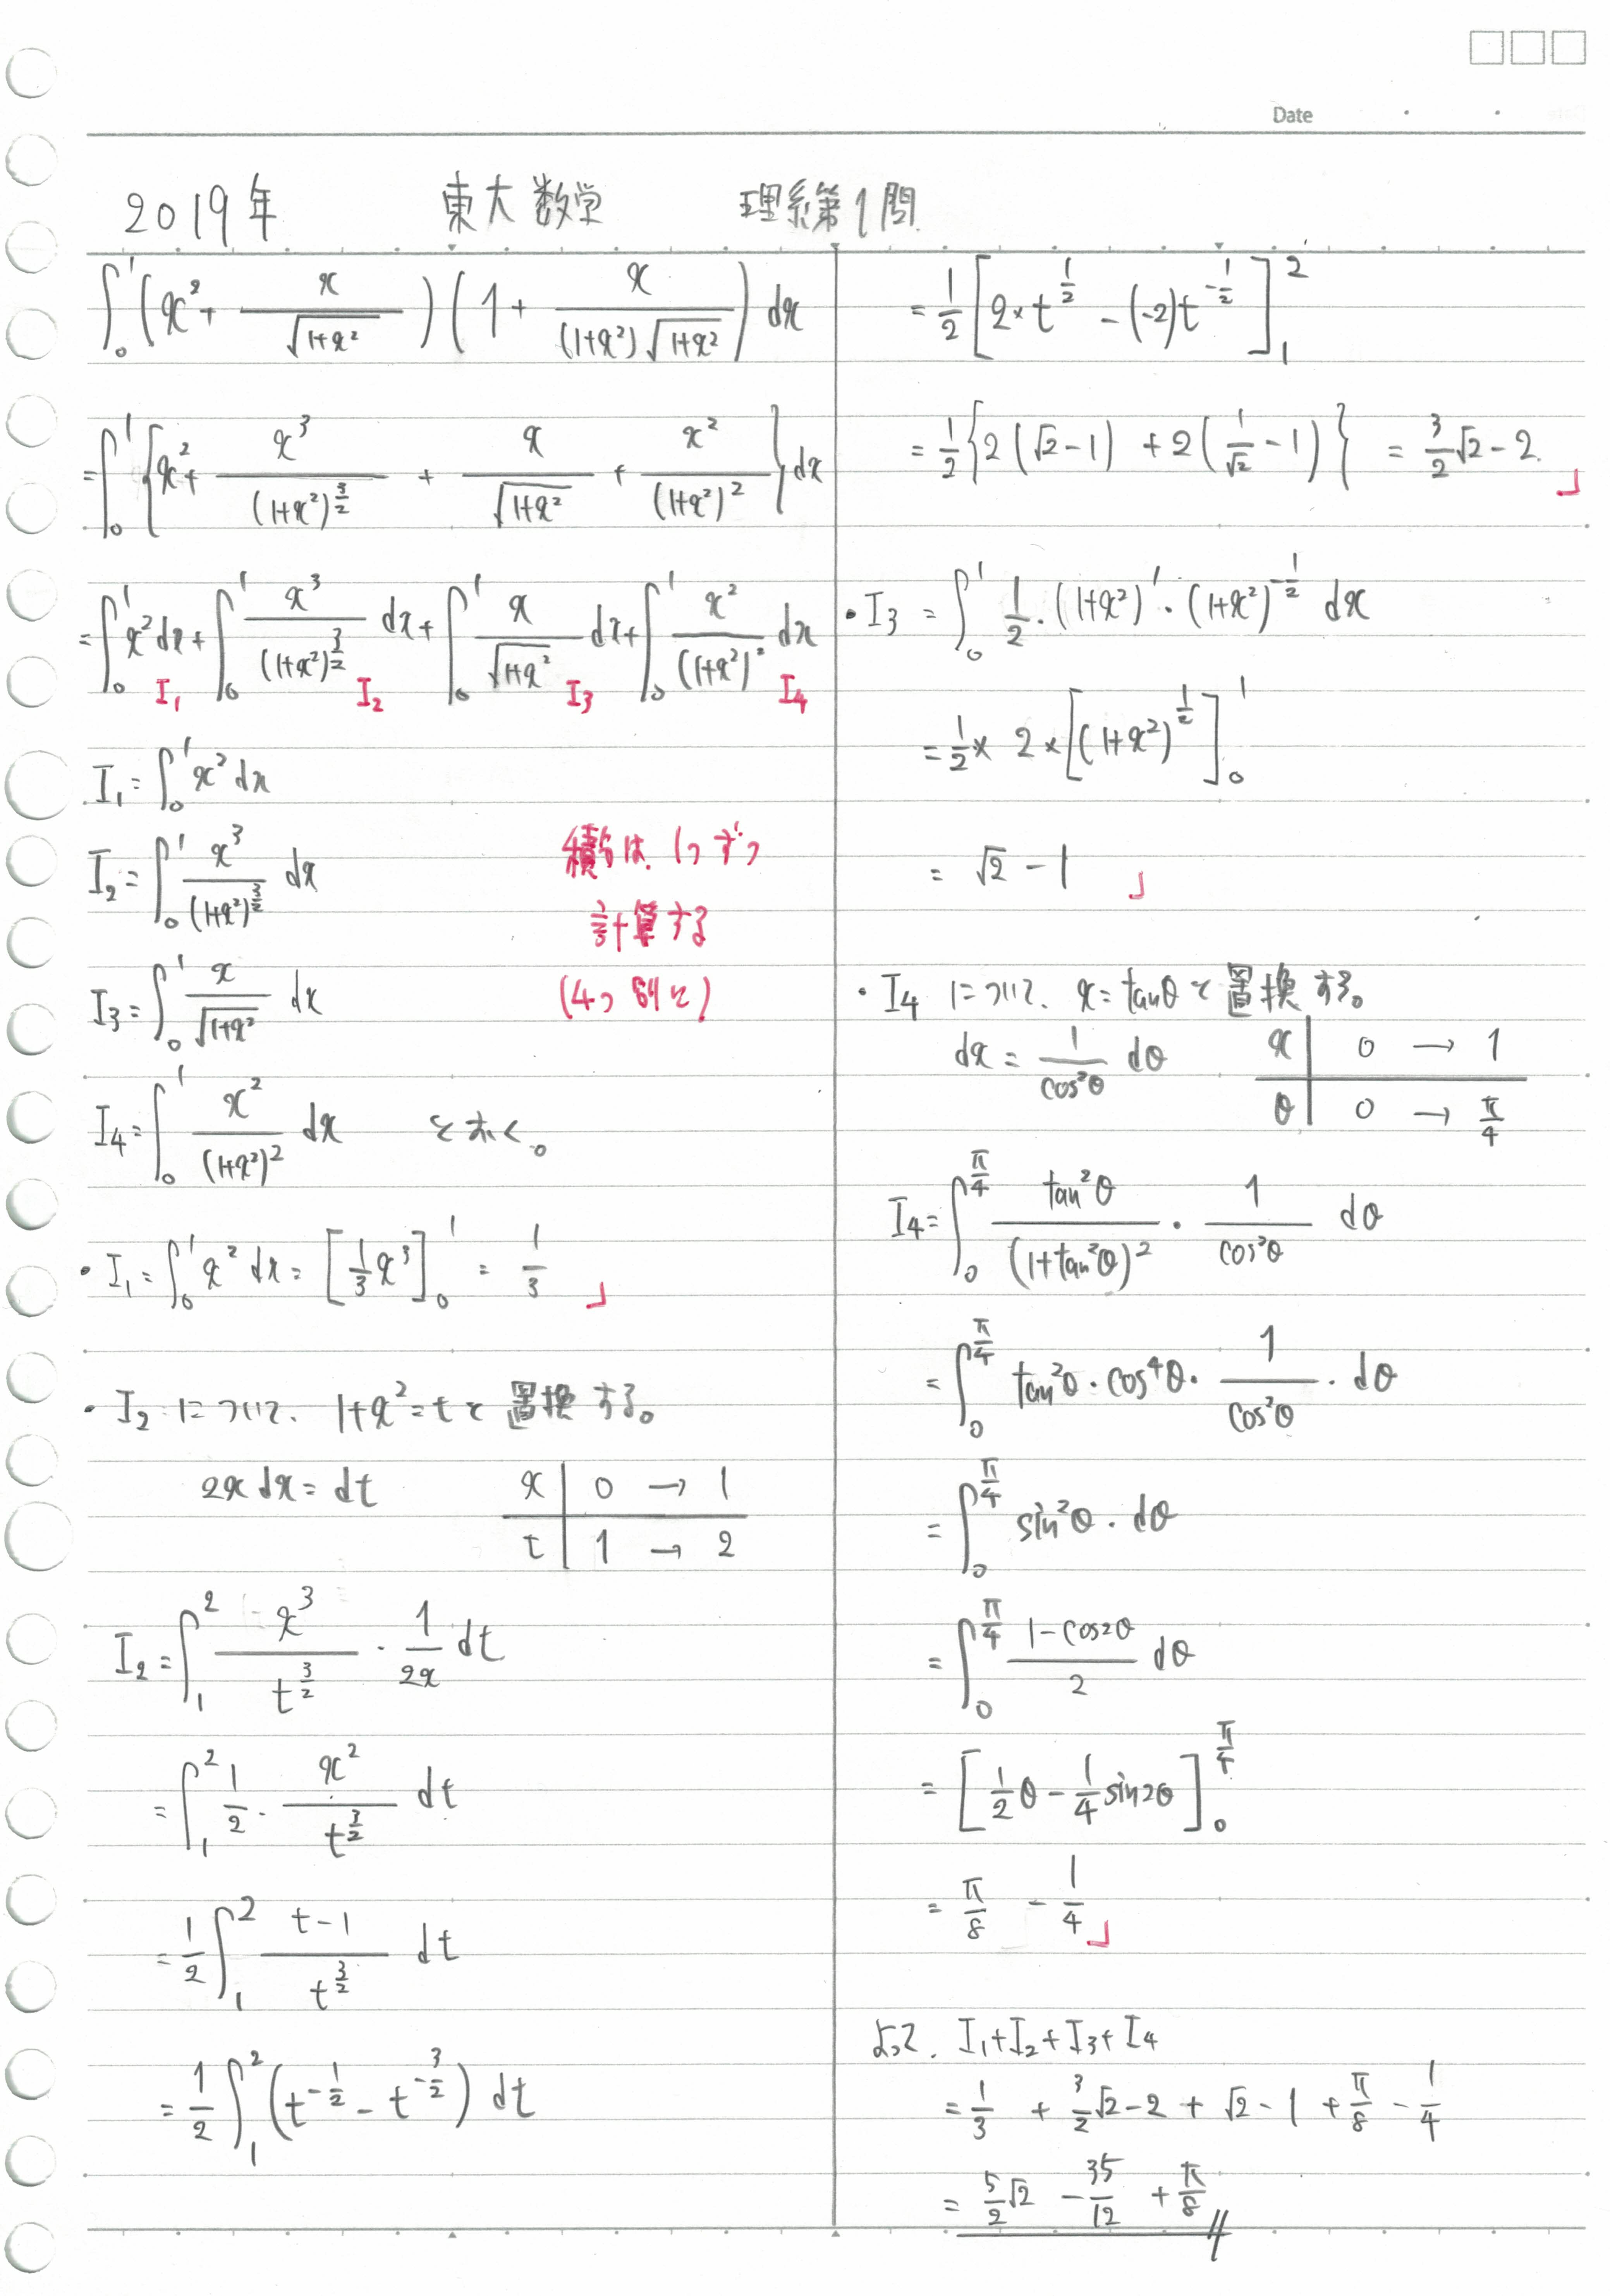 Date
2019年 東大数学 理系第1問
∫₀¹ (x² + x/√(1+x²)) (1 + x/((1+x²)√(1+x²))) dx
= ∫₀¹ {x² + x³/(1+x²)^(3/2) + x/√(1+x²) + x²/(1+x²)²} dx
= ∫₀¹ x² dx + ∫₀¹ x³/(1+x²)^(3/2) dx + ∫₀¹ x/√(1+x²) dx + ∫₀¹ x²/(1+x²)² dx
I₁ I₂ I₃ I₄
I₁ = ∫₀¹ x² dx
I₂ = ∫₀¹ x³/(1+x²)^(3/2) dx
I₃ = ∫₀¹ x/√(1+x²) dx
I₄ = ∫₀¹ x²/(1+x²)² dx とおく。
積分は、1つずつ
計算する
(4つ別に)
・I₁ = ∫₀¹ x² dx = [1/3 x³]₀¹ = 1/3 」
・I₂について、1+x²=tと置換する。
2x dx = dt
x | 0 → 1
t | 1 → 2
I₂ = ∫₁² x³/t^(3/2) · 1/2x dt
= ∫₁² 1/2 · x²/t^(3/2) dt
= 1/2 ∫₁² (t-1)/t^(3/2) dt
= 1/2 ∫₁² (t^(-1/2) - t^(-3/2)) dt
= 1/2 [2×t^(1/2) - (-2)t^(-1/2)]₁²
= 1/2 {2(√2-1) + 2(1/√2 - 1)} = 3/2 √2 - 2. 」
・I₃ = ∫₀¹ 1/2 · (1+x²)' · (1+x²)^(-1/2) dx
= 1/2 × 2 × [(1+x²)^(1/2)]₀¹
= √2 - 1 」
・I₄について、x=tanθと置換する。
dx = 1/cos²θ dθ
x | 0 → 1
θ | 0 → π/4
I₄ = ∫₀^(π/4) tan²θ/(1+tan²θ)² · 1/cos²θ dθ
= ∫₀^(π/4) tan²θ · cos⁴θ · 1/cos²θ · dθ
= ∫₀^(π/4) sin²θ · dθ
= ∫₀^(π/4) (1-cos2θ)/2 dθ
= [1/2 θ - 1/4 sin2θ]₀^(π/4)
= π/8 - 1/4 」
よって、I₁+I₂+I₃+I₄
= 1/3 + 3/2 √2 - 2 + √2 - 1 + π/8 - 1/4
= 5/2 √2 - 35/12 + π/8